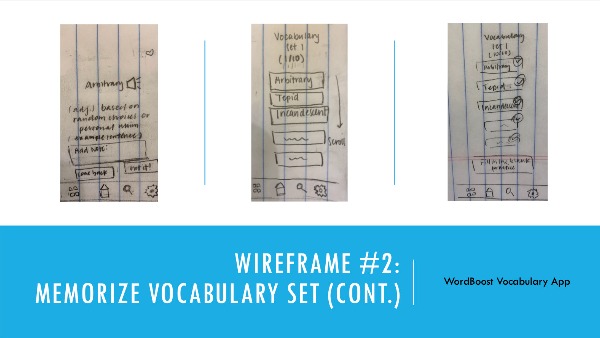 Arbitrary
(adj.) based on
random choices or
personal whim
(example sentence)
Add Note:
come back
Got it!
Vocabulary
Set 1
(1/10)
Arbitrary
Tepid
Incandescent
Scroll
Vocabulary
Set 1
(10/10)
Arbitrary
Tepid
Incandescent
Fill in the blank
practice
WIREFRAME #2:
MEMORIZE VOCABULARY SET (CONT.)
WordBoost Vocabulary App